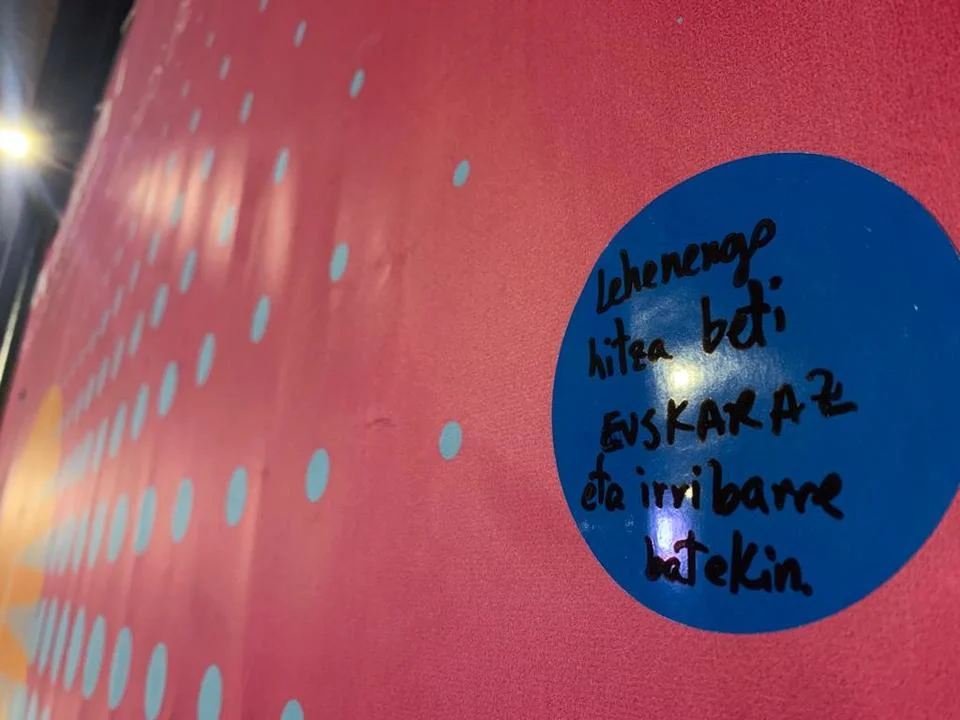 Lehenengo
hitza beti
EUSKARAZ
eta irribarre
batekin.